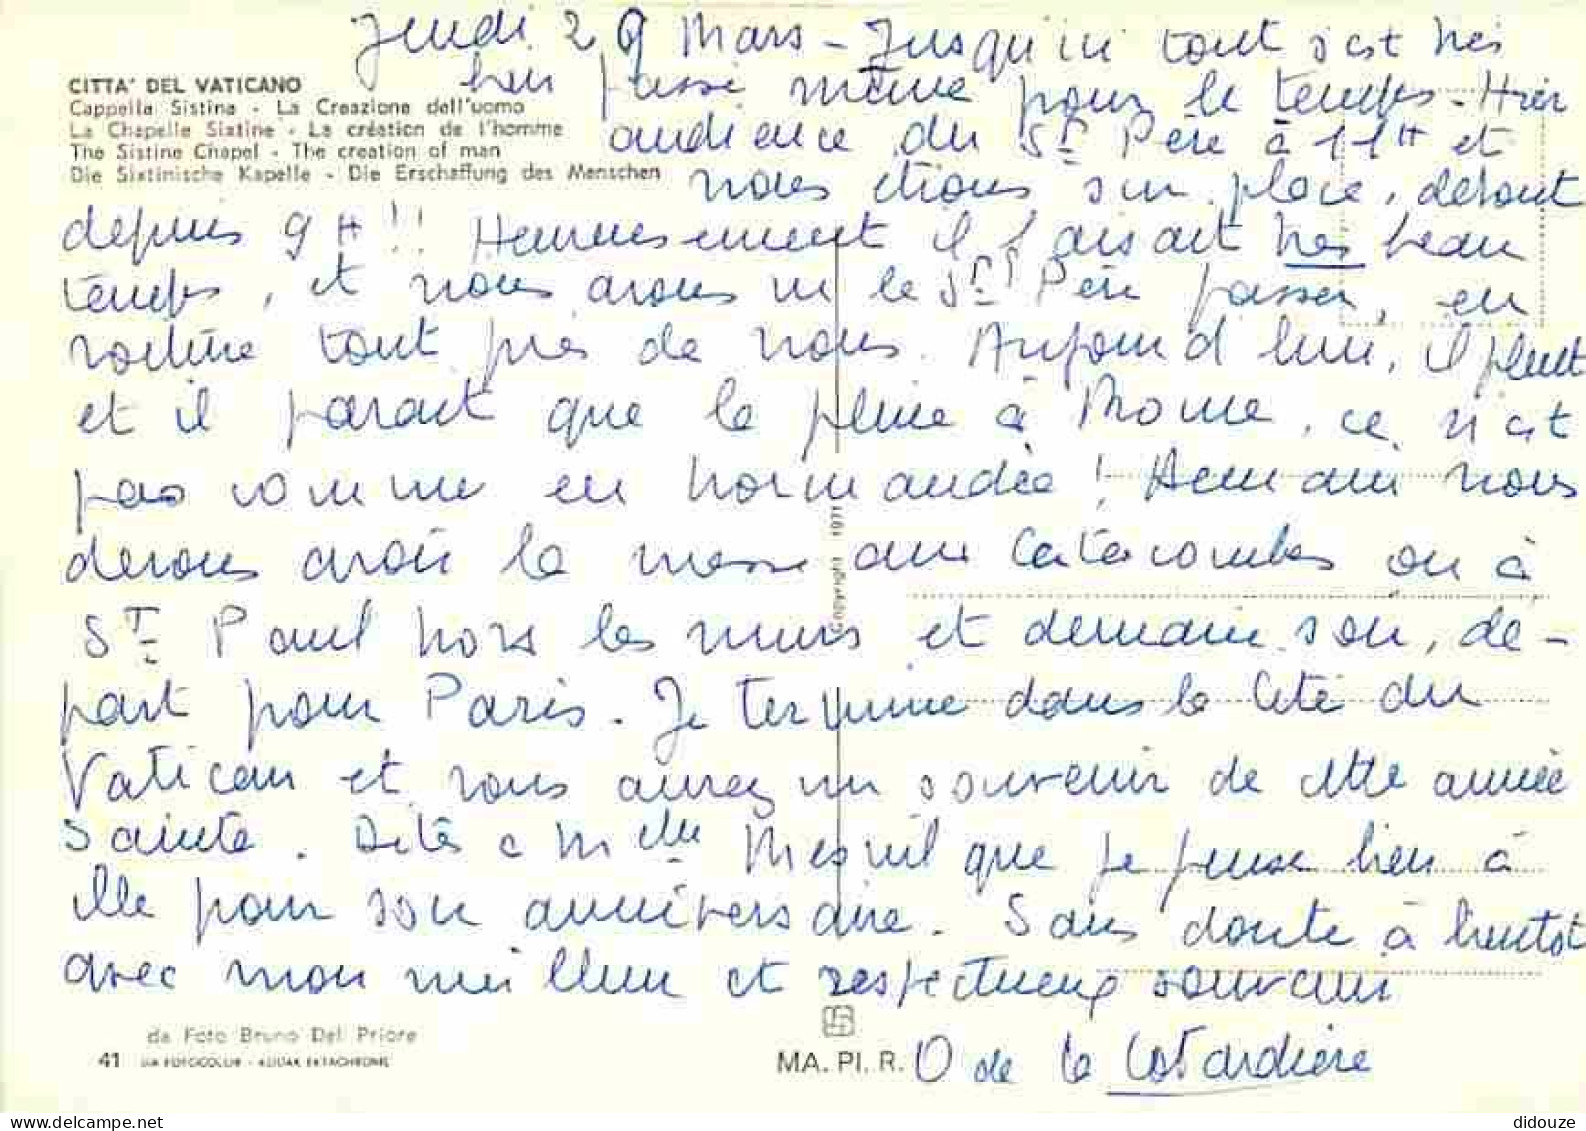 Jeudi 29 Mars - Jusqu'ici tout s'est très
CITTA' DEL VATICANO
bien passé même pour le temps - Hier
Cappella Sistina - La Creazione dell'uomo
La Chapelle Sixtine - La création de l'homme
audience du St Père à 11H et
The Sistine Chapel - The creation of man
Die Sixtinische Kapelle - Die Erschaffung des Menschen
nous étions sur place, debout
depuis 9H!! Heureusement il faisait très beau
temps, et nous avons vu le St Père passer, en
voiture tout près de nous. Aujourd'hui, il pleut
et il parait que la pluie à Rome, ce n'est
pas comme en Normandie! Demain nous
devons avoir la messe aux Catacombes ou à
St Paul hors les murs et demain soir, dé-
part pour Paris. Je termine dans la Cité du
Vatican et vous aurez un souvenir de cette année
Sainte. Dites à M du Mesnil que je pense bien à
elle pour son anniversaire. Sans doute à bientôt
avec mon meilleur et respectueux souvenir
O de la Cotardière
da Foto Bruno Del Priore
41 DIA FOTOCOLOR - KODAK EKTACHROME
MA. PI. R.
Copyright 1971
didouze